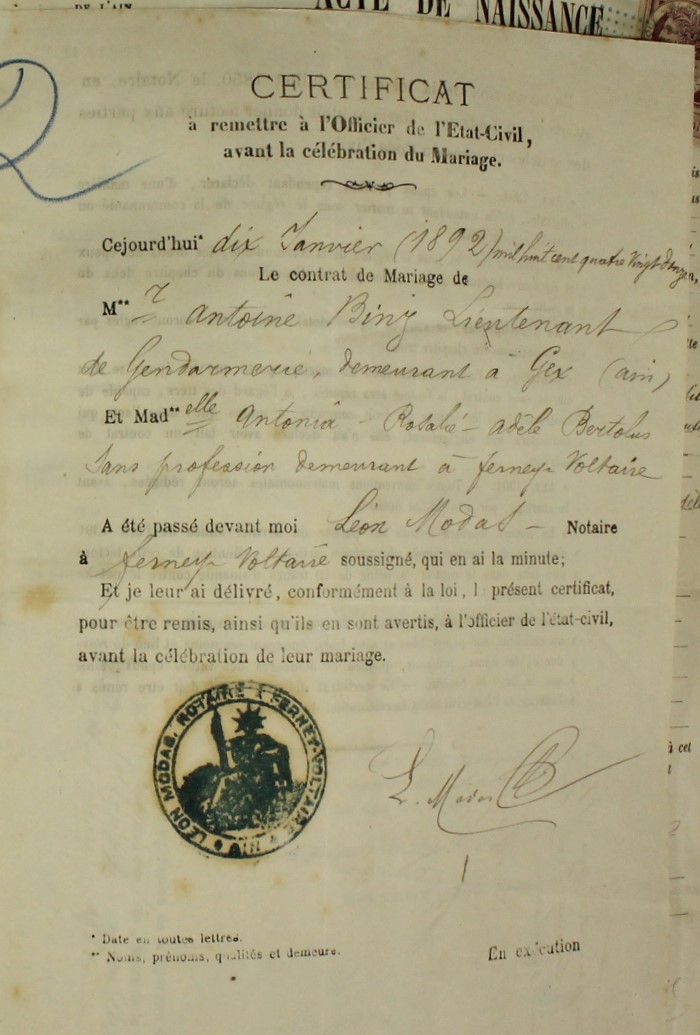 DE L'AIN
ACTE DE NAISSANCE
2
CERTIFICAT
à remettre à l'Officier de l'Etat-Civil,
avant la célébration du Mariage.
Cejourd'hui* dix Janvier (1892) mil huit cent quatre vingt douze,
Le contrat de Mariage de
M** Antoine Binz Lieutenant
de Gendarmerie, demeurant à Gex (ain)
Et Mad** elle Antonia - Rosalie - adèle Bertolus
Sans profession demeurant à ferney-Voltaire
A été passé devant moi Léon Modas - Notaire
à ferney-Voltaire soussigné, qui en ai la minute;
Et je leur ai délivré, conformément à la loi, l présent certificat,
pour être remis, ainsi qu'ils en sont avertis, à l'officier de l'état-civil,
avant la célébration de leur mariage.
LÉON MODAS, NOTAIRE À FERNEY-VOLTAIRE
AIN
L. Modas
* Date en toutes lettres.
** Noms, prénoms, qualités et demeure.
En exécution